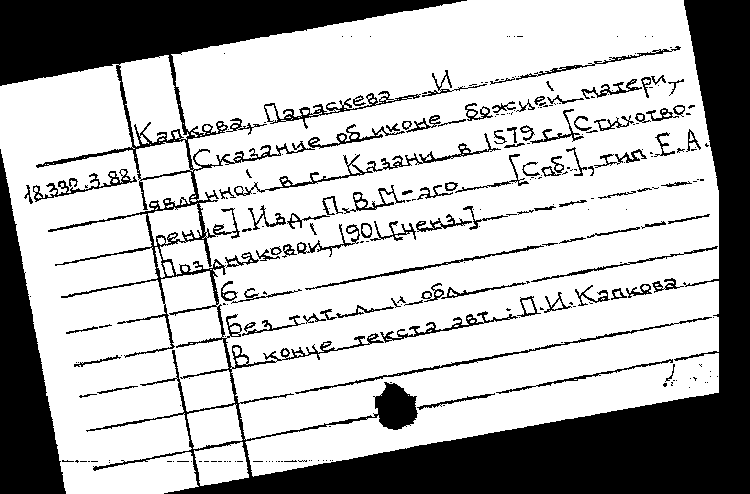 Капкова, Параскева И
18.392.3.88. Сказание об иконе божией матери,
явленной в г. Казани в 1579 г. [Стихотво-
рение] Изд. П.В.М-аго. [Спб.], тип. Е.А.
Поздняковой, 1901 [ценз.]
6 с.
Без тит. л. и обл.
В конце текста авт.: П.И.Капкова.